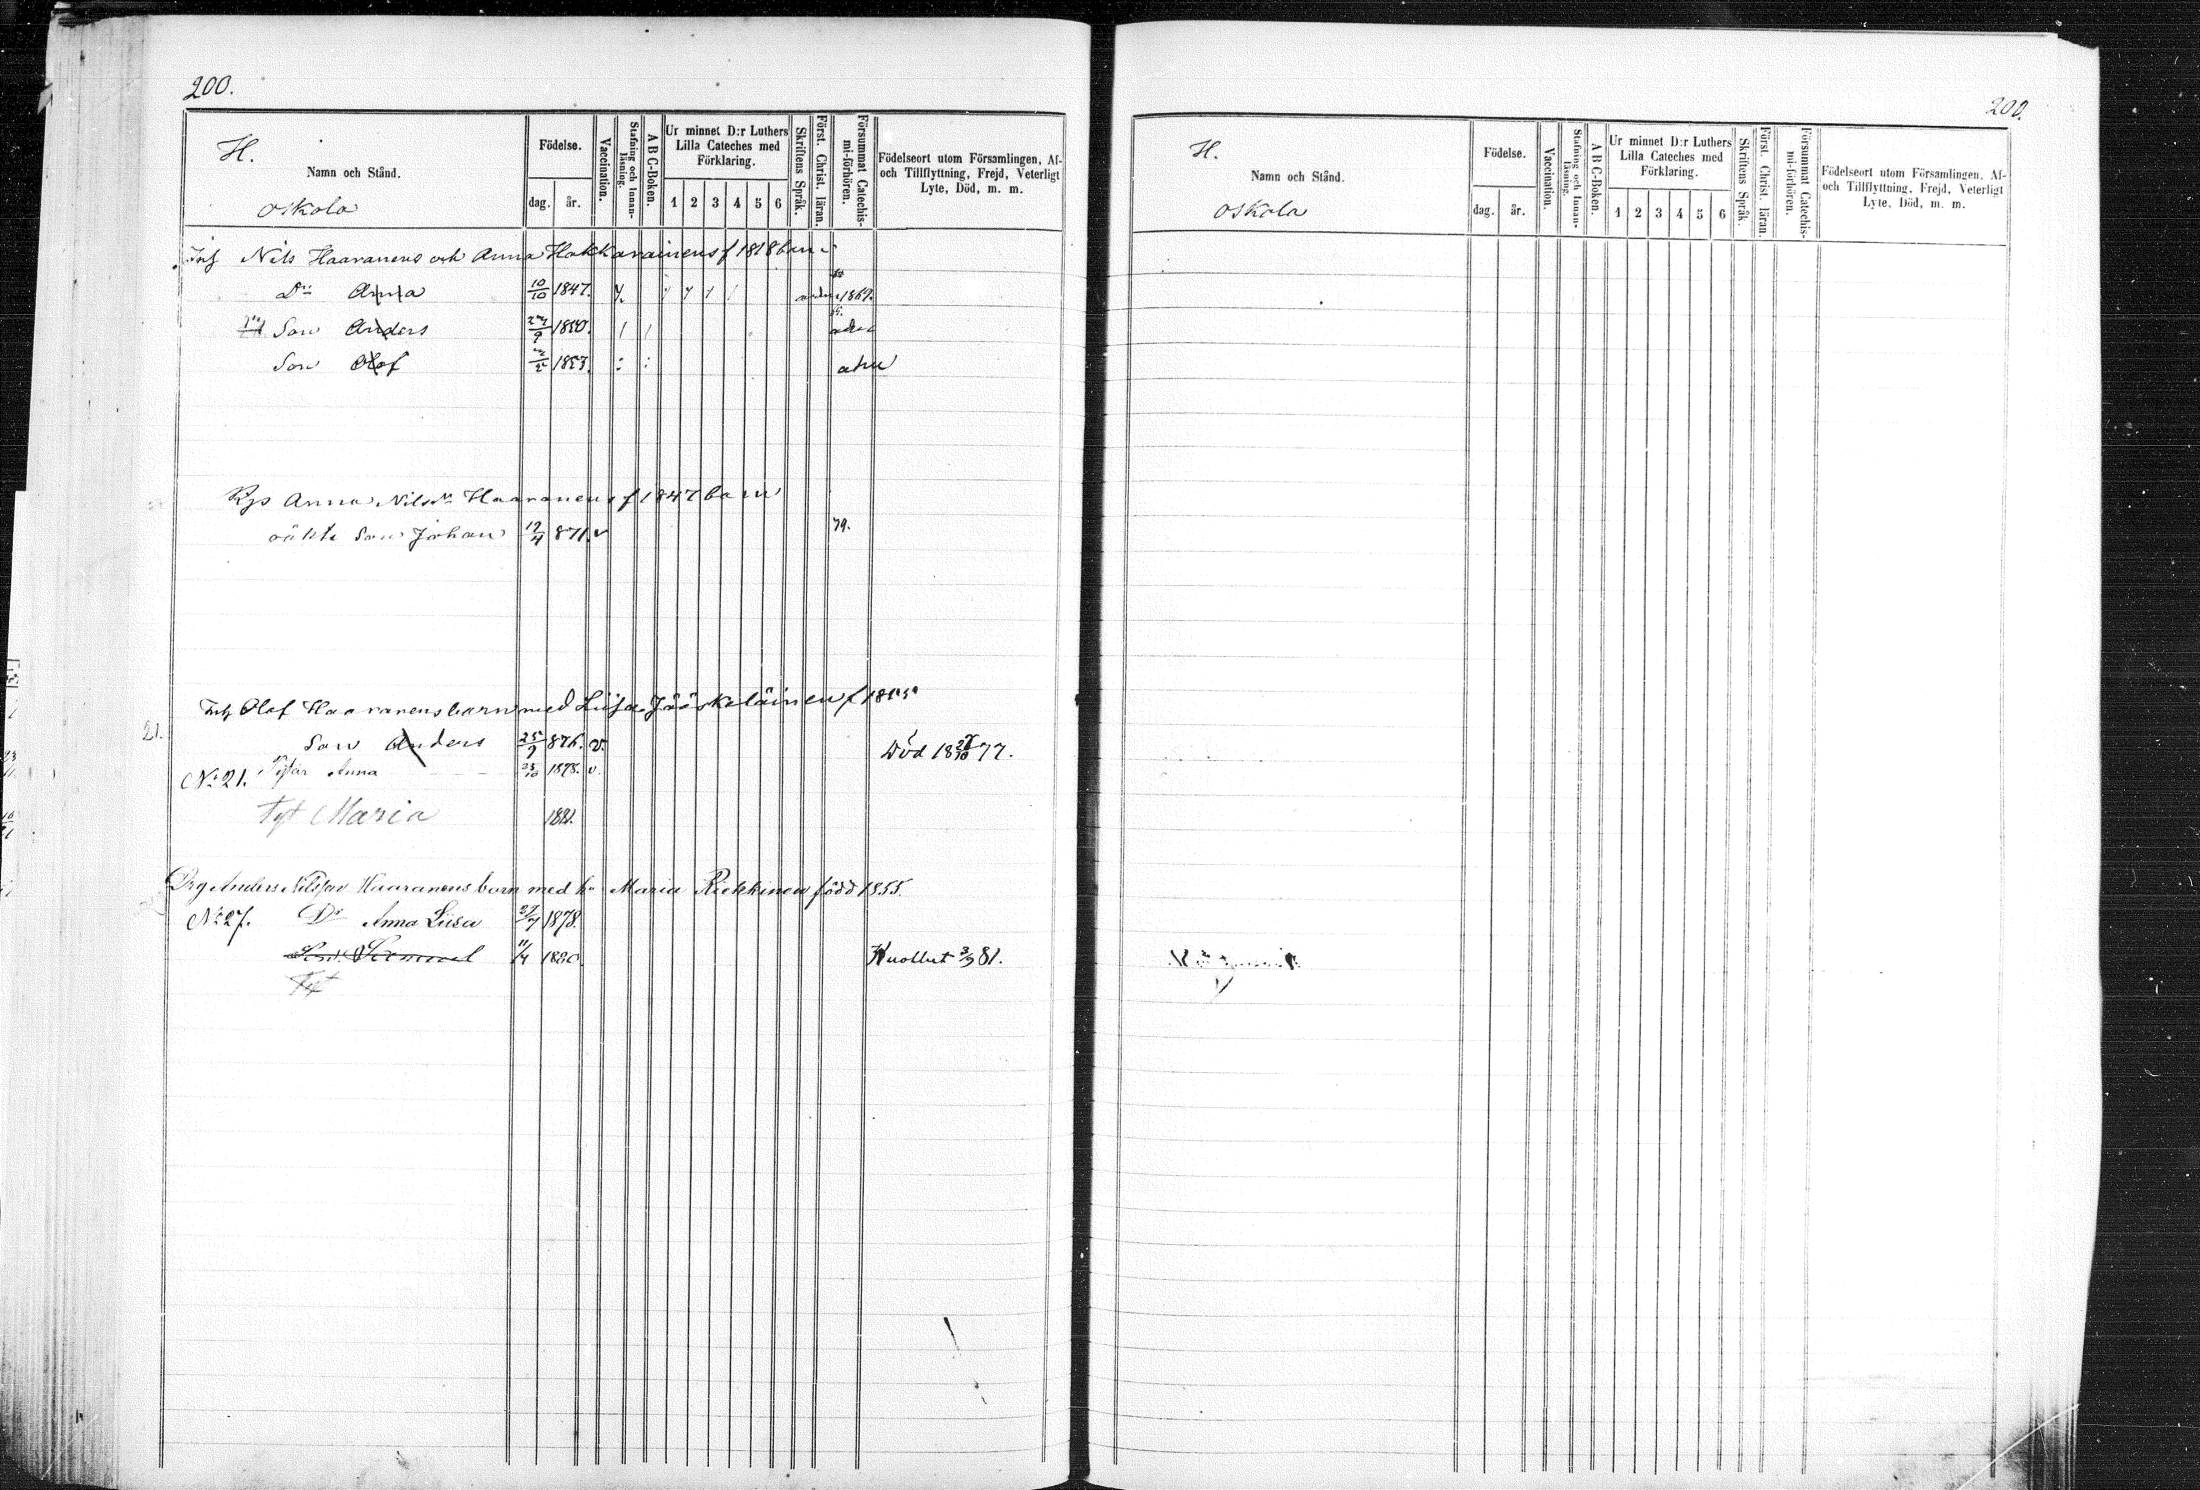 200.
H.
Namn och Stånd.
Oskola
Födelse.
dag. år.
Vaccination.
Stafning och Innan-läsning.
A B C-Boken.
Ur minnet D:r Luthers Lilla Cateches med Förklaring.
1 2 3 4 5 6
Skriftens Språk.
Först. Christ. läran.
Försummat Catechis-mi-förhören.
Födelseort utom Församlingen, Af- och Tillflyttning, Frejd, Veterligt Lyte, Död, m. m.
Nils Haaranens och Anna Hakkarainens f 1818 barn
Dr Anna 10/10 1847. 1869.
Son Anders 1850.
Son Olof 1853.
Anna Nilsdr Haaranens f 1847 barn
oäkta Son Johan 19/4 871. v 79.
Olof Haaranens barn med Liisa Jääskeläinen f 1855
21.
Son Anders 25/9 876. v. Död 18 77.
No 21. Tytär Anna 23/10 1878. v.
Tyt Maria 1881.
Anders Nilsson Haaranens barn med hu Maria Riekkinen född 1855.
No 27. Dr Anna Liisa 27/7 1878.
Son 11/4 1880. Kuollut 3/9 81.
Tyt
200.
H.
Namn och Stånd.
Oskola
Födelse.
dag. år.
Vaccination.
Stafning och Innan-läsning.
A B C-Boken.
Ur minnet D:r Luthers Lilla Cateches med Förklaring.
1 2 3 4 5 6
Skriftens Språk.
Först. Christ. läran.
Försummat Catechis-mi-förhören.
Födelseort utom Församlingen, Af- och Tillflyttning, Frejd, Veterligt Lyte, Död, m. m.